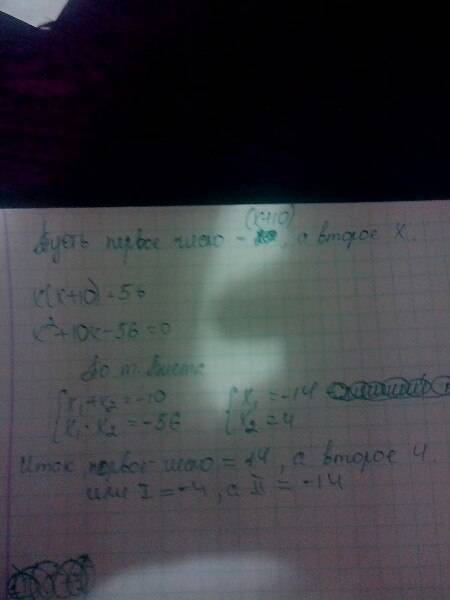 (x+10)
Пусть первое число - , а второе x.
x(x+10)=56
x²+10x-56=0
По т. Виета
{x₁+x₂=-10 {x₁=-14
{x₁·x₂=-56 {x₂=4
Итак первое число = 14, а второе 4.
или I = -4, а II = -14